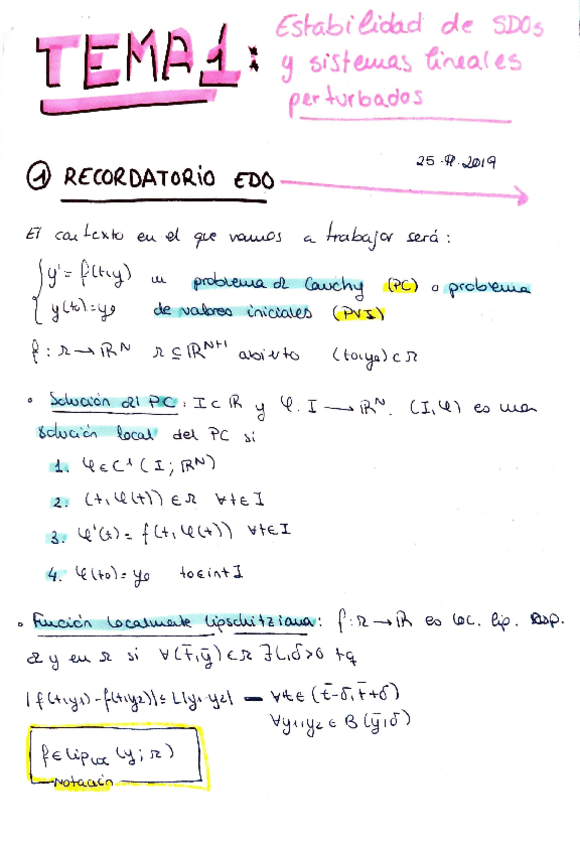 TEMA 1:
Estabilidad de SDOs
y sistemas lineales
perturbados
25·9·2019
① RECORDATORIO EDO
El contexto en el que vamos a trabajar será:
{ y' = f(t,y) un problema de Cauchy (PC) o problema
{ y(t0)=y0 de valores iniciales (PVI)
f: Ω → ℝᴺ Ω ⊆ ℝᴺ⁺¹ abierto (t0,y0) ⊂ Ω
• Solución del PC: I ⊂ ℝ y φ: I → ℝᴺ. (I,φ) es una
solución local del PC si
1. φ ∈ C¹(I; ℝᴺ)
2. (t, φ(t)) ∈ Ω ∀t ∈ I
3. φ'(t) = f(t, φ(t)) ∀t ∈ I
4. φ(t0) = y0 t0 ∈ int I
• Función localmente lipschitziana: f: Ω → ℝ es loc. lip. resp.
de y en Ω si ∀(t̄,ȳ) ⊂ Ω ∃L,δ>0 tq
|f(t,y1)-f(t,y2)| ≤ L|y1-y2| — ∀t ∈ (t̄-δ, t̄+δ)
∀y1,y2 ∈ B(ȳ,δ)
f ∈ Lip loc (y; Ω)
notación